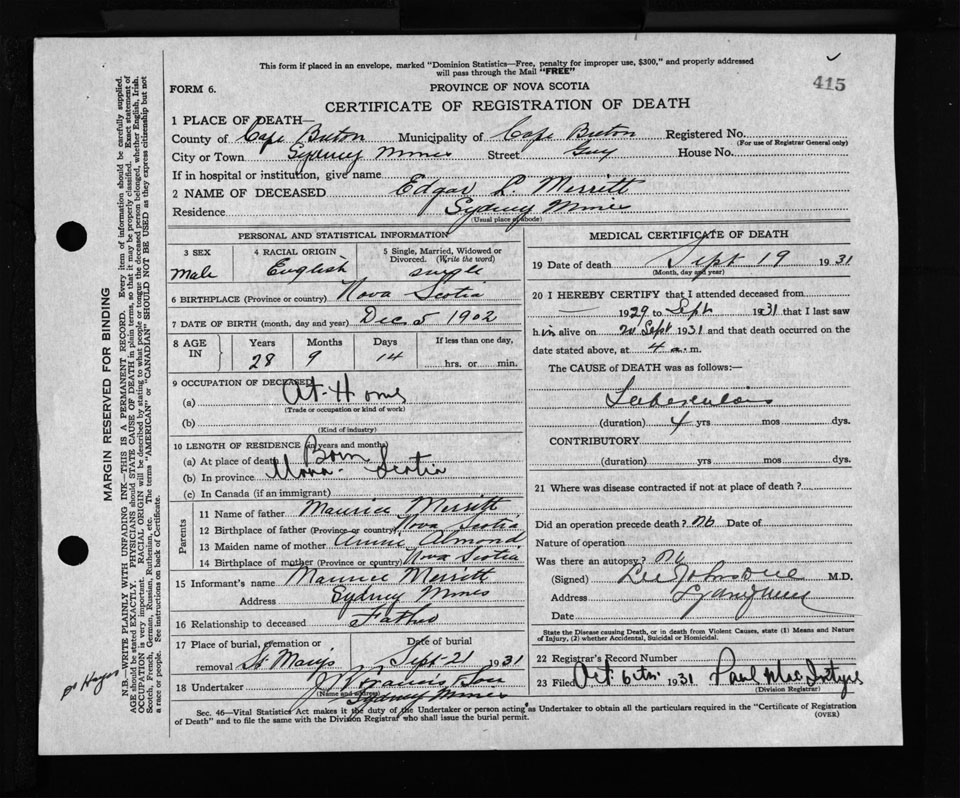 This form if placed in an envelope, marked "Dominion Statistics—Free, penalty for improper use, $300," and properly addressed
will pass through the Mail "FREE"
415
FORM 6.
PROVINCE OF NOVA SCOTIA
CERTIFICATE OF REGISTRATION OF DEATH
1 PLACE OF DEATH—
County of Cape Breton Municipality of Cape Breton Registered No.
(For use of Registrar General only)
City or Town Sydney Mines Street Guy House No.
If in hospital or institution, give name
2 NAME OF DECEASED Edgar L. Merritt
Residence Sydney Mines
(Usual place of abode)
PERSONAL AND STATISTICAL INFORMATION
3 SEX
Male
4 RACIAL ORIGIN
English
5 Single, Married, Widowed or
Divorced. (Write the word)
single
6 BIRTHPLACE (Province or country) Nova Scotia
7 DATE OF BIRTH (month, day and year) Dec 5 1902
8 AGE
IN
Years Months Days
28 9 14
If less than one day,
hrs. or min.
9 OCCUPATION OF DECEASED
(a) At Home
(Trade or occupation or kind of work)
(b)
(Kind of industry)
10 LENGTH OF RESIDENCE (in years and months)
(a) At place of death Born
(b) In province Nova Scotia
(c) In Canada (if an immigrant)
Parents
11 Name of father Maurice Merritt
12 Birthplace of father (Province or country) Nova Scotia
13 Maiden name of mother Annie Almond
14 Birthplace of mother (Province or country) Nova Scotia
15 Informant's name Maurice Merritt
Address Sydney Mines
16 Relationship to deceased Father
17 Place of burial, cremation or
removal St. Mary's
Date of burial
Sept 21 1931
18 Undertaker J. Francis & Son
(Name and address)
Sydney Mines
MEDICAL CERTIFICATE OF DEATH
19 Date of death Sept 19 1931
(Month, day and year)
20 I HEREBY CERTIFY that I attended deceased from
1929 to Sept 1931 that I last saw
h.im alive on Sept 1931 and that death occurred on the
date stated above, at 4 a.m.
The CAUSE of DEATH was as follows:—
Tuberculosis
(duration) 4 yrs mos dys.
CONTRIBUTORY
(duration) yrs mos dys.
21 Where was disease contracted if not at place of death?
Did an operation precede death? No Date of
Nature of operation
Was there an autopsy? No
(Signed) Johnstone M.D.
Address Sydney Mines
Date
State the Disease causing Death, or in death from Violent Causes, state (1) Means and Nature
of Injury, (2) whether Accidental, Suicidal or Homicidal.
22 Registrar's Record Number
23 Filed Oct. 6th 1931 Paul MacIntyre
(Division Registrar)
Sec. 46—Vital Statistics Act makes it the duty of the Undertaker or person acting as Undertaker to obtain all the particulars required in the "Certificate of Registration
of Death" and to file the same with the Division Registrar who shall issue the burial permit.
(OVER)
MARGIN RESERVED FOR BINDING
N.B.—WRITE PLAINLY WITH UNFADING INK—THIS IS A PERMANENT RECORD. Every item of information should be carefully supplied.
AGE should be stated EXACTLY. PHYSICIANS should STATE CAUSE OF DEATH in plain terms, so that it may be properly classified. Exact statement of
OCCUPATION is very important. RACIAL ORIGIN will be described by stating to what people or tongue the deceased person belonged, whether English, Irish,
Scotch, French, German, Russian, Ruthenian, etc. The terms "AMERICAN" or "CANADIAN" SHOULD NOT BE USED as they express citizenship but not
a race or people. See instructions on back of Certificate.
Hayes